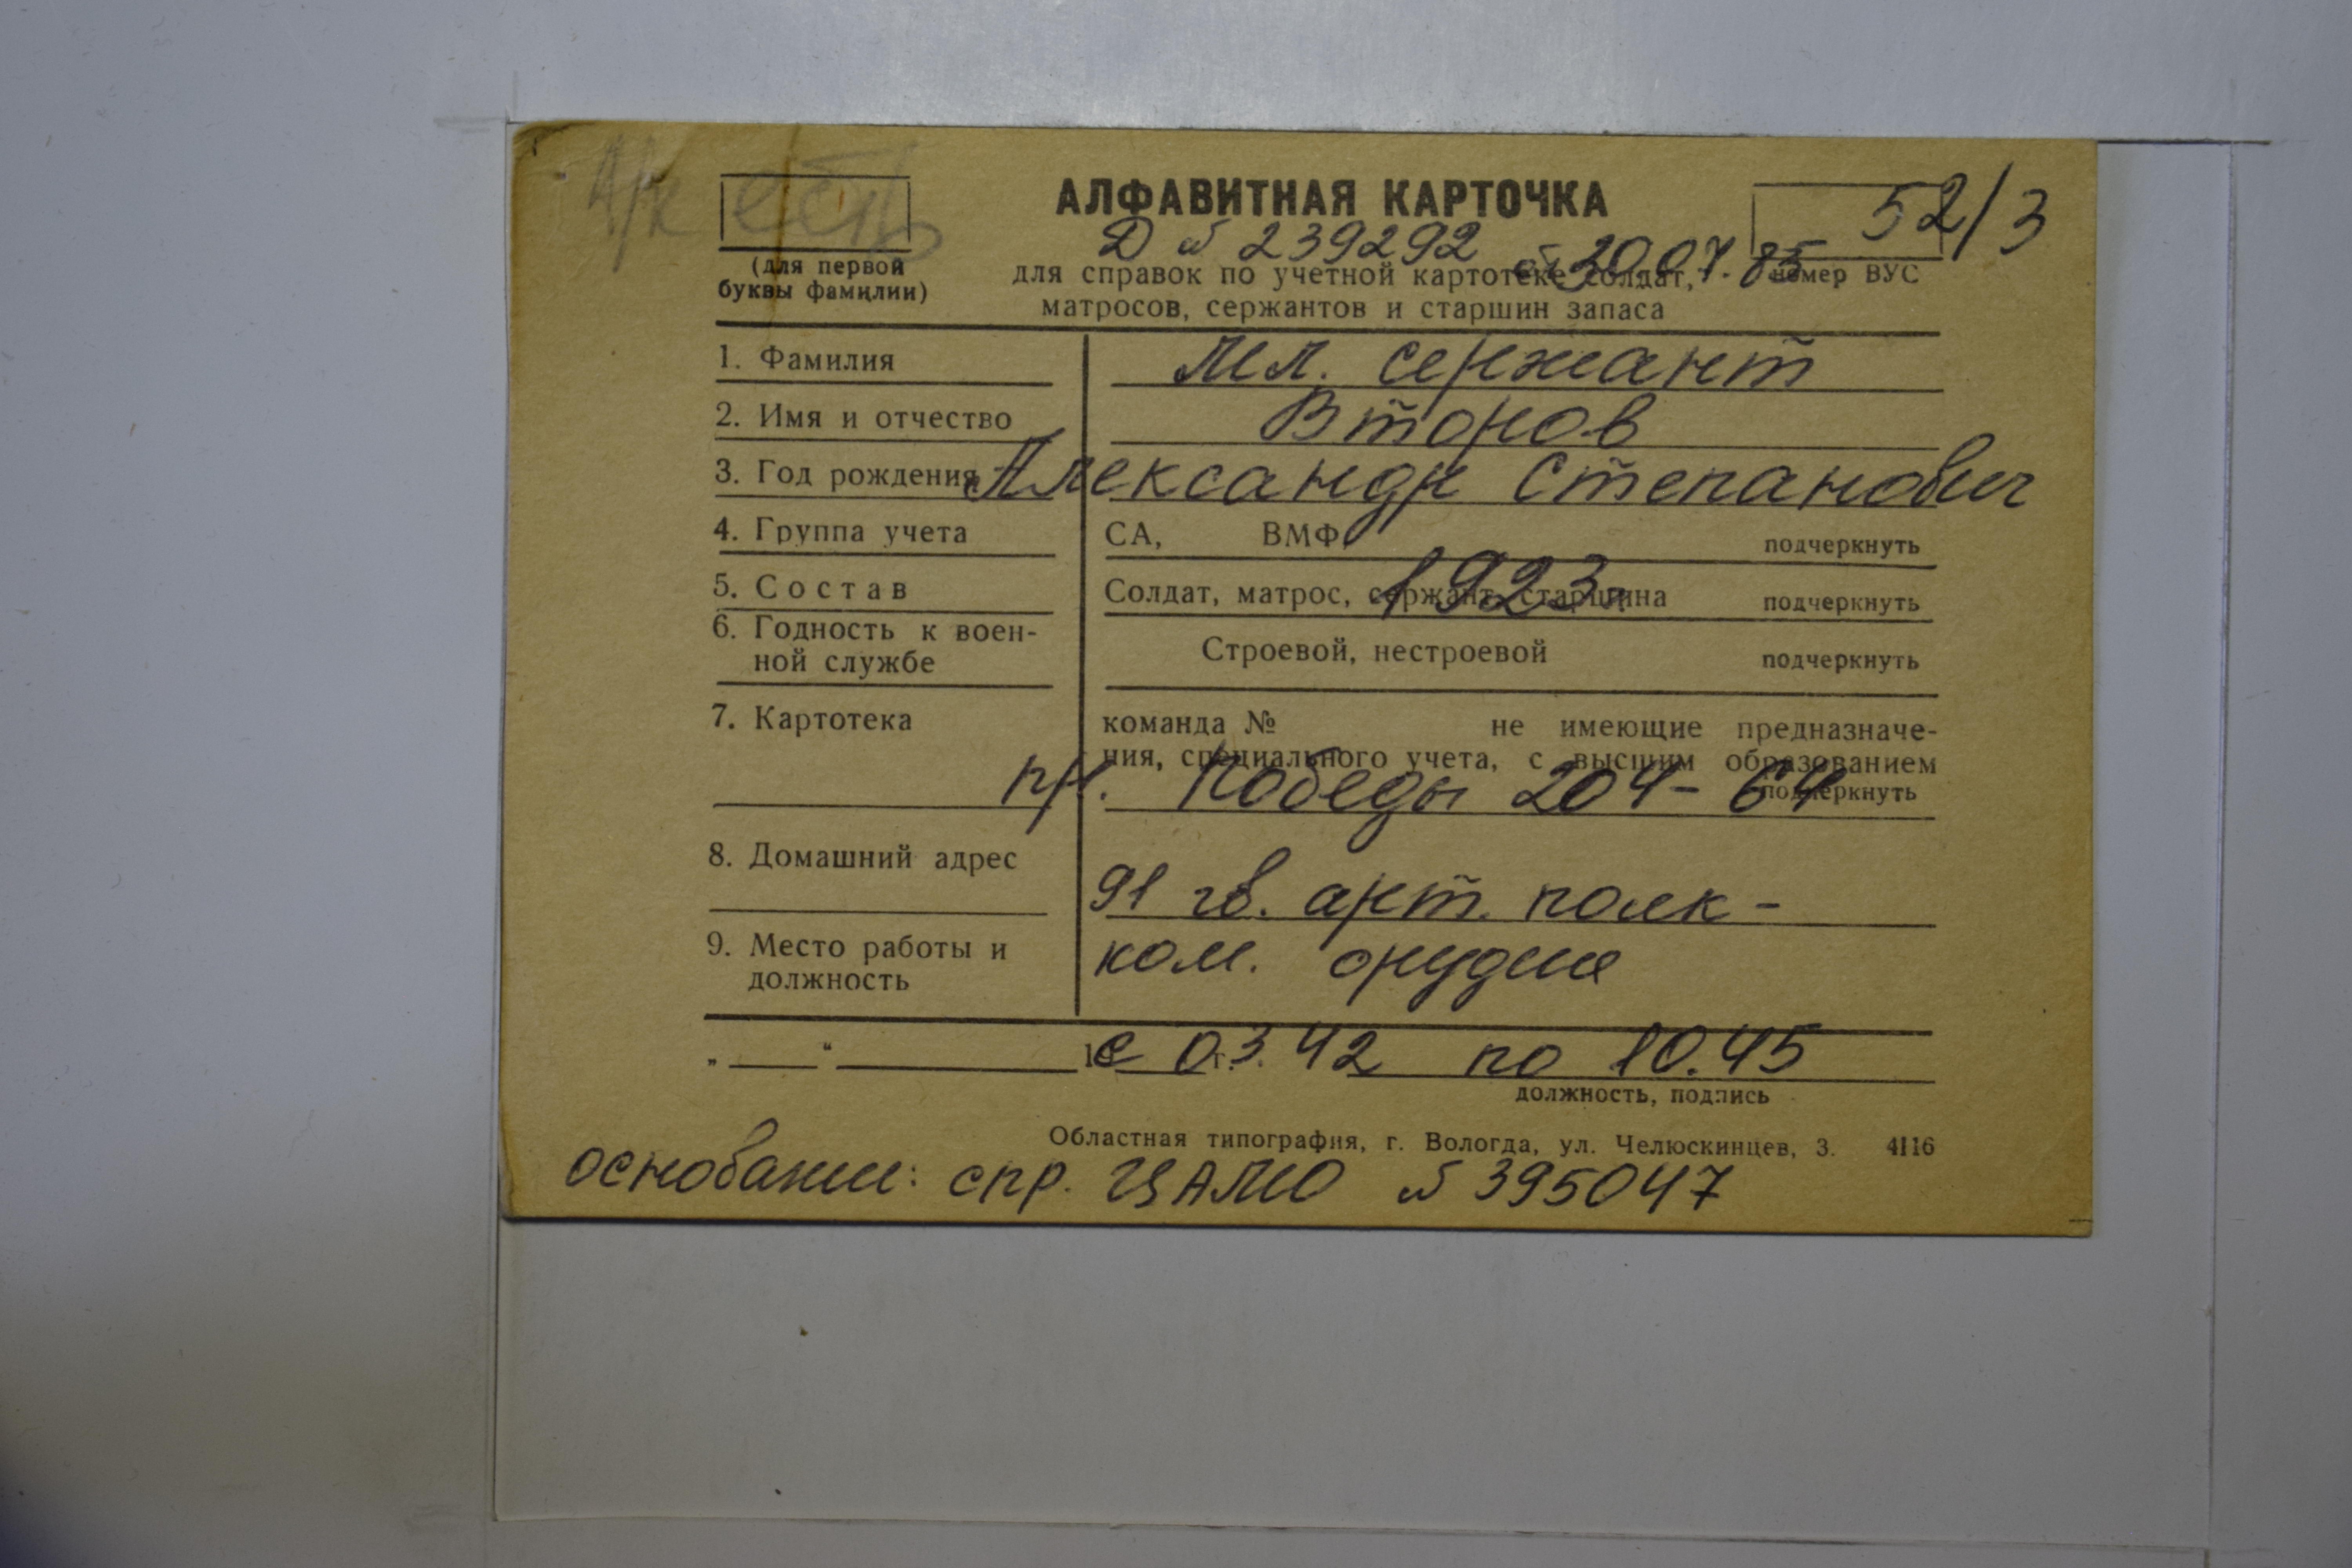 А/к есть
АЛФАВИТНАЯ КАРТОЧКА
52/3
Д № 239292 от 30.07.85
(для первой буквы фамилии)
для справок по учетной картотеке солдат,
номер ВУС
матросов, сержантов и старшин запаса
1. Фамилия мл. сержант
2. Имя и отчество Второв
3. Год рождения Александр Степанович
4. Группа учета СА, ВМФ подчеркнуть
1923г
5. Состав Солдат, матрос, сержант, старшина подчеркнуть
6. Годность к воен-
ной службе Строевой, нестроевой подчеркнуть
7. Картотека команда № не имеющие предназначе-
ния, специального учета, с высшим образованием
подчеркнуть
пр. Победы 204-64
8. Домашний адрес
91 гв. арт. полк -
9. Место работы и
должность
ком. орудия
„ “ 19 г.
с 03.42 по 10.45
должность, подпись
Областная типография, г. Вологда, ул. Челюскинцев, 3. 4116
основании: спр. ЦАМО № 395047